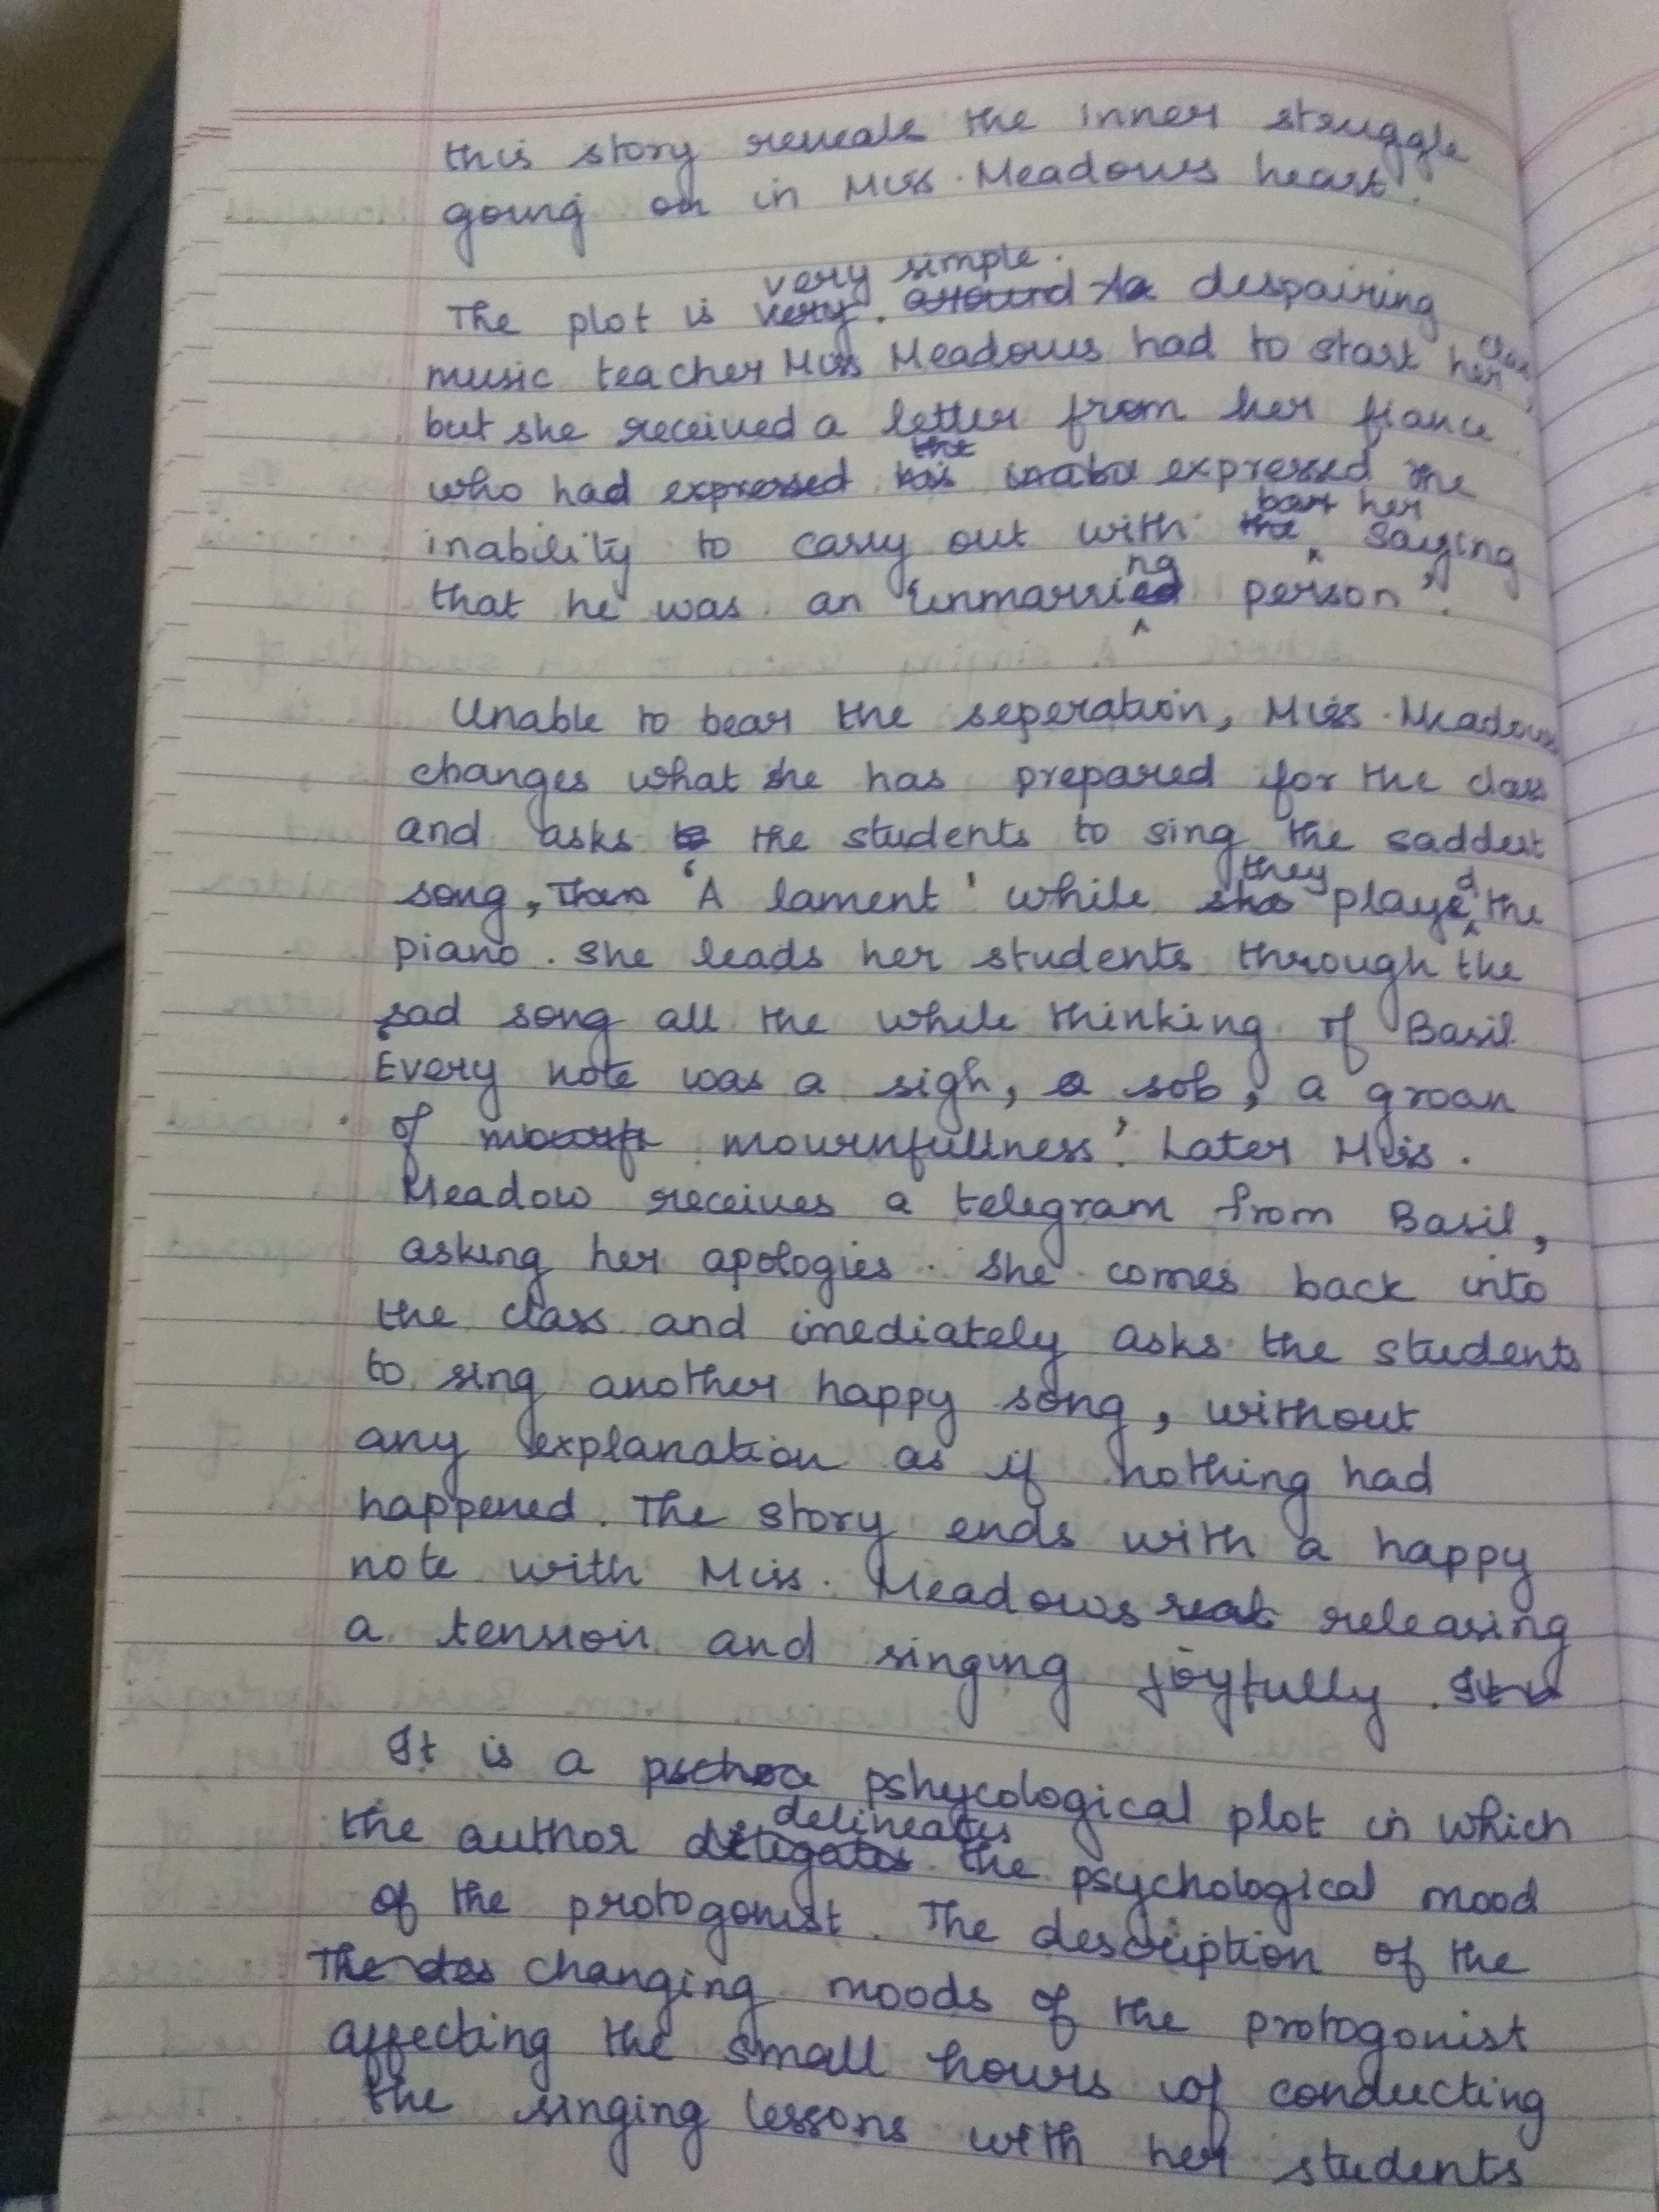 this story reveals the inner struggle
going on in Miss. Meadows heart.
very simple.
The plot is very. around ta despairing
music teacher Miss Meadows had to start her class,
but she received a letter from her fiance
who had expressed his the inabi expressed the
inability to carry out with the bar her saying
that he was an 'unmarrieding person'.
Unable to bear the seperation, Miss. Meadows
changes what she has prepared for the class
and asks to the students to sing the saddest
song, Then 'A lament' while she they played the
piano. She leads her students through the
sad song all the while thinking of Basil.
'Every note was a sigh, a sob, a groan
of mournfullness'. Later Miss.
Meadow receives a telegram from Basil,
asking her apologies. She comes back into
the class and imediately asks the students
to sing another happy song, without
any explanation as if nothing had
happened. The story ends with a happy
note with Miss. Meadows releasing
a tension and singing joyfully.
It is a pshycological plot in which
the author delineates the psychological mood
of the protogonist. The description of the
The des changing moods of the protogonist
affecting the small hours of conducting
the singing lessons with her students